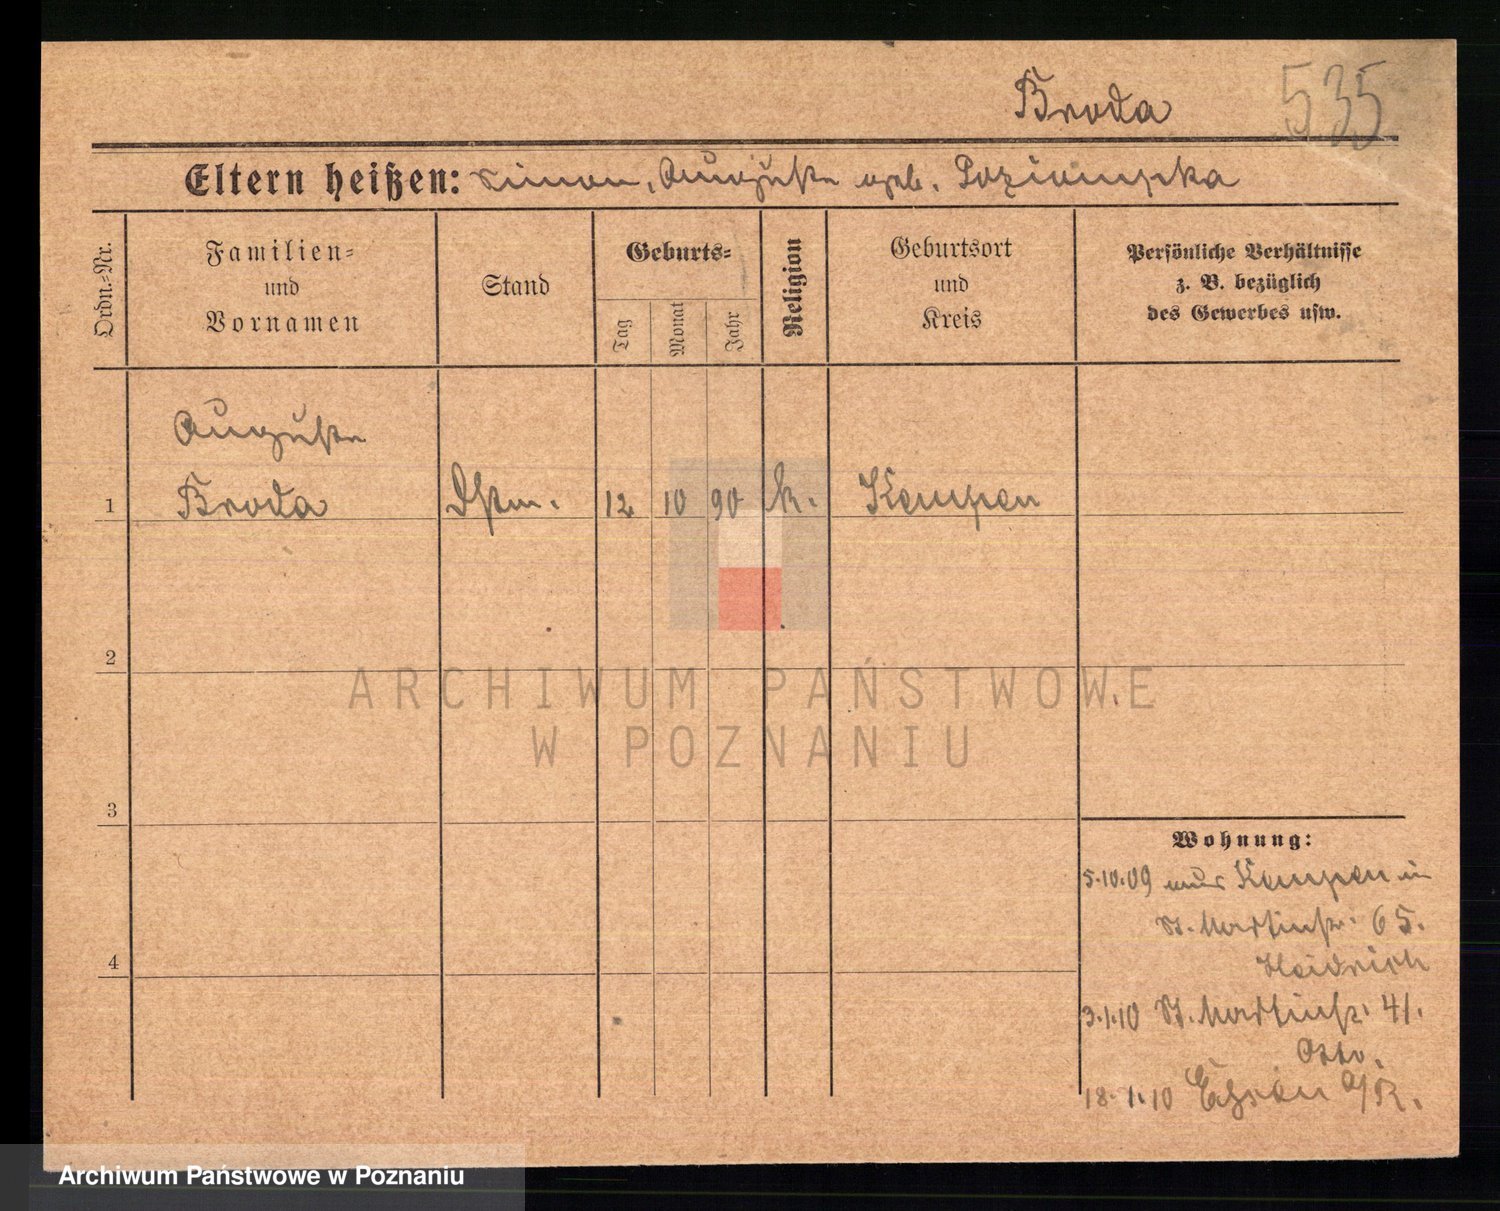 Broda 535
Eltern heißen: Simon, Auguste geb. Pozimpska
Ordn.-Nr.
Familien-
und
Vornamen
Stand
Geburts-
Tag
Monat
Jahr
Religion
Geburtsort
und
Kreis
Persönliche Verhältnisse
z. B. bezüglich
des Gewerbes usw.
Auguste
1 Broda Dstm. 12 10 90 k. Kempen
2
3
4
Wohnung:
5.10.09 aus Kempen in
St. Martinstr. 65.
Heidrich
3.1.10 St. Martinstr. 41.
Otto.
18.1.10
ARCHIWUM PAŃSTWOWE
W POZNANIU
Archiwum Państwowe w Poznaniu